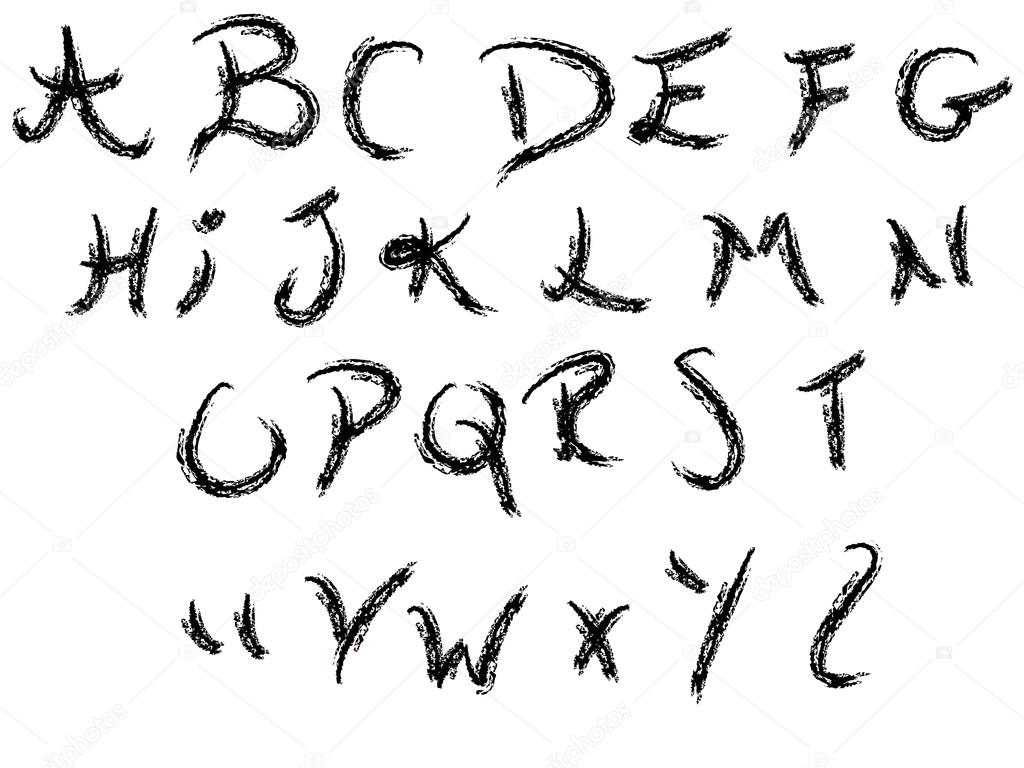 A B C D E F G
H i J K L M N
O P Q R S T
U V W X Y Z
depositphotos